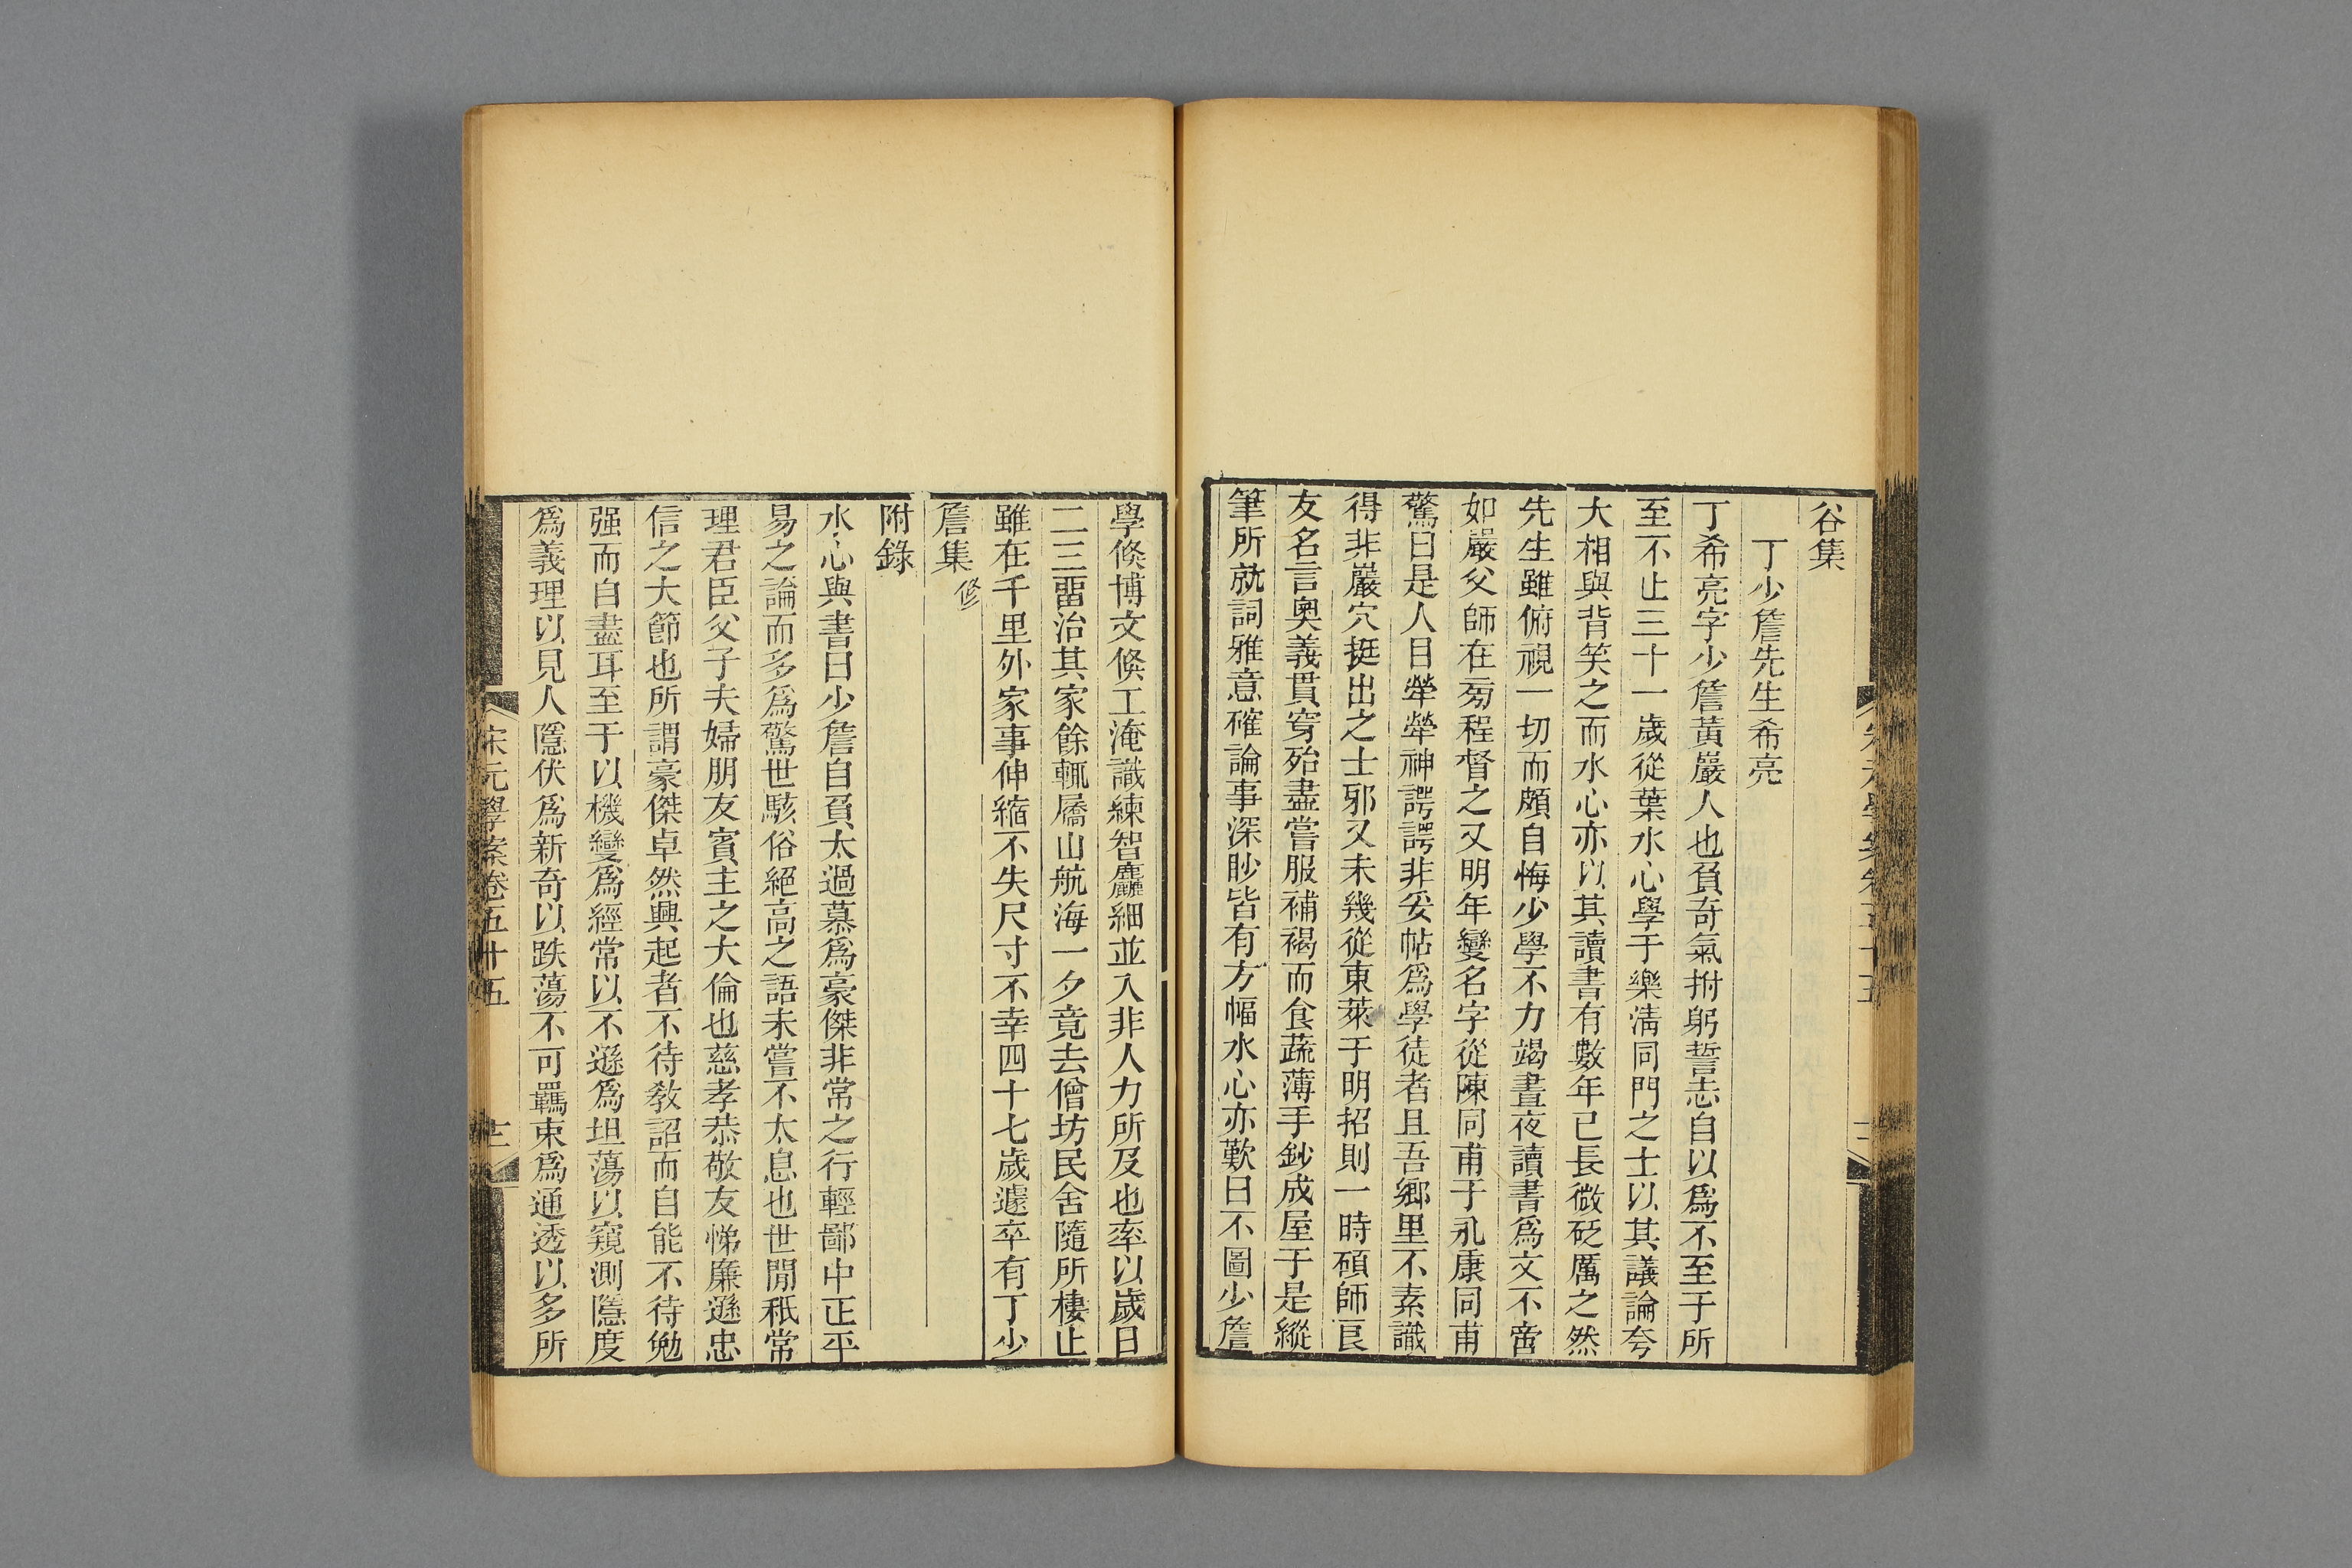 谷集
丁少詹先生希亮
丁希亮字少詹黃巖人也負奇氣拊躬誓志自以爲不至于所
至不止三十一歲從葉水心學于樂淸同門之士以其議論夸
大相與背笑之而水心亦以其讀書有數年已長微砭厲之然
先生雖俯視一切而頗自悔少學不力竭晝夜讀書爲文不啻
如嚴父師在㫄程督之又明年變名字從陳同甫于永康同甫
驚曰是人目犖犖神諤諤非妥帖爲學徒者且吾鄉里不素識
得非巖穴挺出之士邪又未幾從東萊于明招則一時碩師良
友名言奧義貫穿殆盡嘗服補褐而食蔬薄手鈔成屋于是縱
筆所就詞雅意確論事深眇皆有方幅水心亦歎曰不圖少詹
學倏博文倏工淹識練智麤細並入非人力所及也率以歲日
二三畱治其家餘輒屩山航海一夕竟去僧坊民舍隨所棲止
雖在千里外家事伸縮不失尺寸不幸四十七歲遽卒有丁少
詹集 修
附錄
水心與書曰少詹自負太過慕爲豪傑非常之行輕鄙中正平
易之論而多爲驚世駭俗絕高之語未嘗不太息也世閒秖常
理君臣父子夫婦朋友賓主之大倫也慈孝恭敬友悌廉遜忠
信之大節也所謂豪傑卓然興起者不待敎詔而自能不待勉
强而自盡耳至于以機變爲經常以不遜爲坦蕩以窺測隱度
爲義理以見人隱伏爲新奇以跌蕩不可羈束爲通透以多所
宋元學案卷五十五